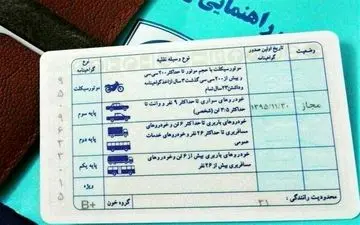 راهنمایی
وضعیت
تاریخ اولین صدور گواهینامه
نوع وسیله نقلیه
نوع گواهینامه
موتورسیکلت با حجم موتور تا حداکثر ۲۰۰ سی سی
و بیش از ۲۰۰ سی سی گذشت ۳ سال از اخذ گواهینامه
و داشتن ۲۳ سال تمام
موتورسیکلت
مجاز
۱۳۹۵/۱۱/۲۰
خودروهای سواری تا حداکثر ۹ نفر و وانت تا
حداکثر ۳/۵ تن (شخصی)
پایه سوم
خودروهای باربری تا حداکثر ۶ تن و خودروهای
مسافربری تا حداکثر ۲۶ نفر و خودروهای خدمات
عمومی
پایه دوم
خودروهای باربری بیش از ۶ تن و خودروهای
مسافربری بیش از ۲۶ نفر
پایه یکم
ویژه
محدودیت رانندگی :
۳۱
گروه خون :
B+